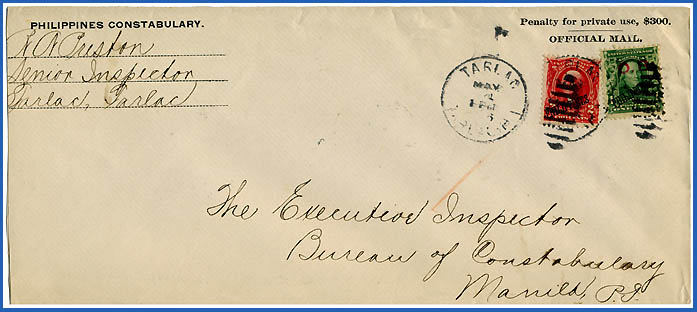 PHILIPPINES CONSTABULARY.
R A Duston
Senior Inspector
Tarlac, Tarlac
Penalty for private use, $300.
OFFICIAL MAIL.
TARLAC
MAY
1 PM
The Executive Inspector
Bureau of Constabulary
Manila, P.I.